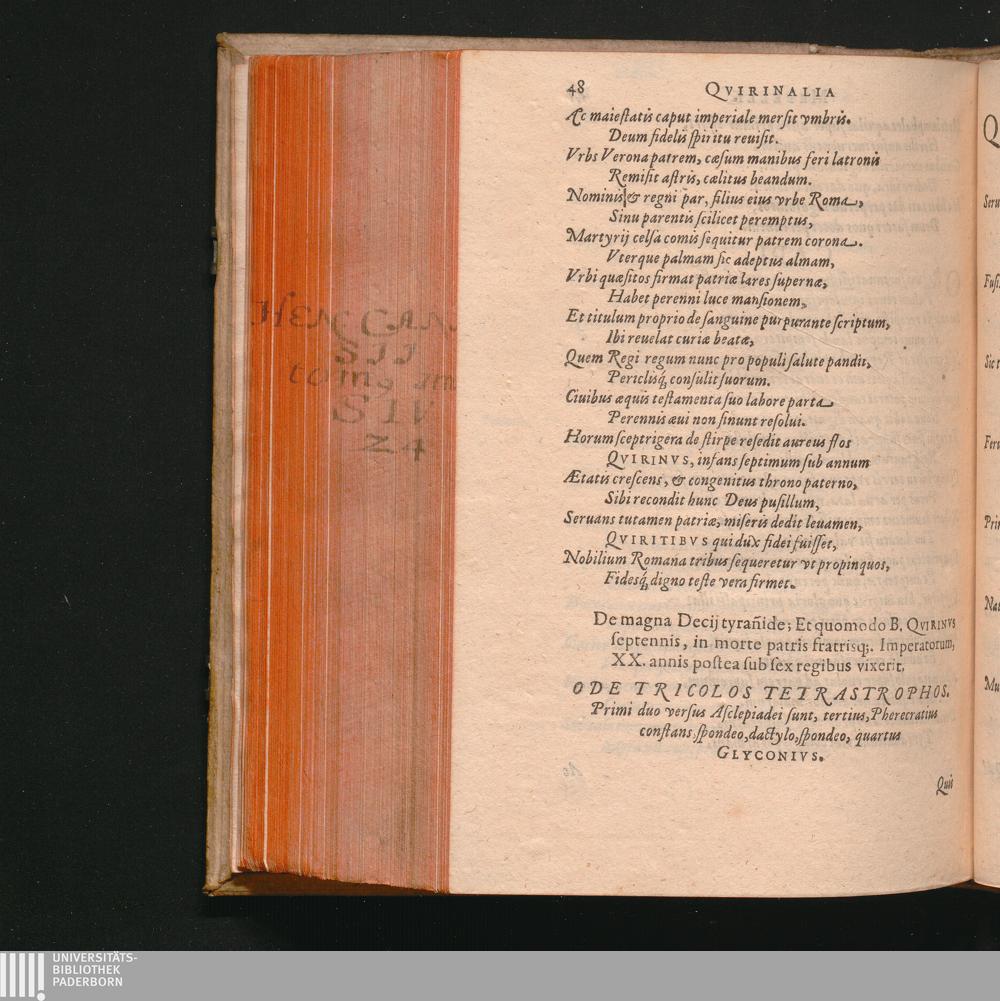 48 QVIRINALIA
Ac maiestatis caput imperiale mersit vmbris.
Deum fidelis spiritu reuisit.
Vrbs Verona patrem, cæsum manibus feri latronis
Remisit astris, cælitus beandum.
Nominis & regni par, filius eius vrbe Roma,
Sinu parentis scilicet peremptus,
Martyrij celsa comis sequitur patrem corona.
Vterque palmam sic adeptus almam,
Vrbi quæsitos firmat patriæ lares supernæ,
Habet perenni luce mansionem,
Et titulum proprio de sanguine purpurante scriptum,
Ibi reuelat curiæ beatæ,
Quem Regi regum nunc pro populi salute pandit,
Periclisq́; consulit suorum.
Ciuibus æquis testamenta suo labore parta
Perennis æui non sinunt resolui.
Horum sceptrigera de stirpe resedit aureus flos
QVIRINVS, infans septimum sub annum
Ætatis crescens, & congenitus throno paterno,
Sibi recondit hunc Deus pusillum,
Seruans tutamen patriæ, miseris dedit leuamen,
QVIRITIBVS qui dux fidei fuisset,
Nobilium Romana tribus sequeretur vt propinquos,
Fidesq́; digno teste vera firmet.
De magna Decij tyrañide; Et quomodo B. QVIRINVS
septennis, in morte patris fratrisq;. Imperatorum,
XX. annis postea sub sex regibus vixerit.
ODE TRICOLOS TETRASTROPHOS.
Primi duo versus Asclepiadei sunt, tertius, Pherecratius
constans, spondeo, dactylo, spondeo, quartus
GLYCONIVS.
Quit
Q
Seru
Fusi
Sic t
Feru
Prin
Nat
Mu
SII
24
UNIVERSITÄTS-
BIBLIOTHEK
PADERBORN